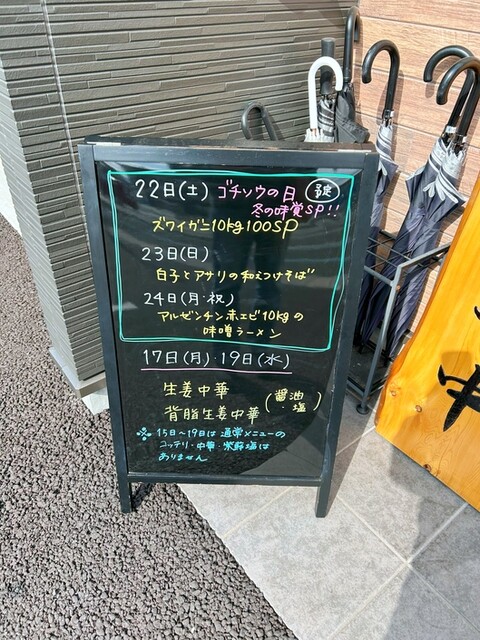 22日(土) ゴチソウの日 予定
冬の味覚SP!!
ズワイガニ10kg100SP
23日(日)
白子とアサリの和えつけそば
24日(月・祝)
アルゼンチン赤エビ10kgの
味噌ラーメン
17日(月)・19日(水)
生姜中華
背脂生姜中華
(醤油・塩)
※15日〜19日は通常メニューの
コッテリ・中華・紫蘇塩は
ありません